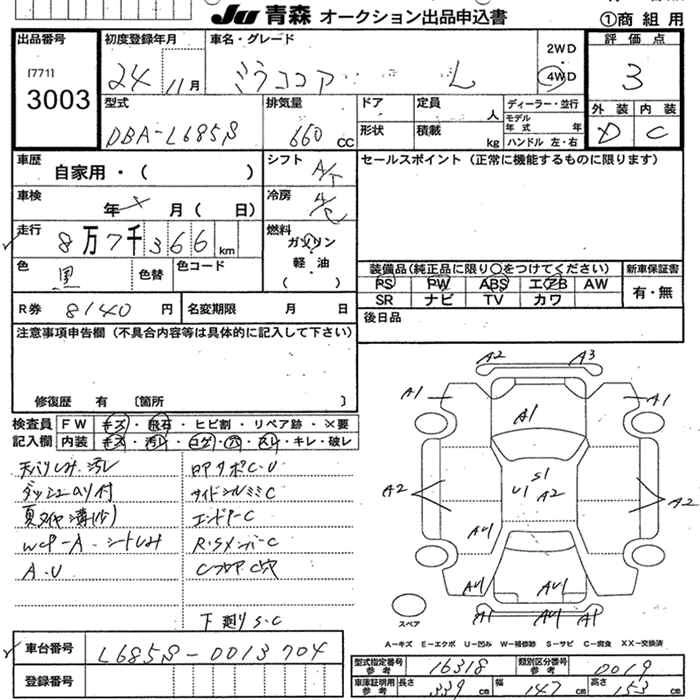 JU 青森 オークション出品申込書
①商組用
出品番号
[771]
3003
初度登録年月
24 11月
車名・グレード
ミラココア L
2WD
4WD
評価点
3
外装 内装
D C
型式
DBA-L685S
排気量
660 CC
ドア
定員 人
形状
積載 kg
ディーラー・並行
モデル年式 年
ハンドル 左・右
車歴
自家用・( )
シフト
A/T
セールスポイント (正常に機能するものに限ります)
車検
年 月( 日)
冷房
A/C
走行
8万7千366 km
燃料
ガソリン
軽・油
( )
色
黒
色替
色コード
装備品(純正品に限り○をつけてください)
新車保証書
PS PW ABS エアB AW
有・無
SR ナビ TV カワ
R券 8140 円
名変期限 月 日
後日品
注意事項申告欄(不具合内容等は具体的に記入して下さい)
修復歴 有 〔箇所 〕
検査員
記入欄
FW キズ・飛石・ヒビ割・リペア跡・×要
内装 キズ・汚レ・コゲ・穴・スレ・キレ・破レ
天バリしみ.汚レ
ロアサポC.U
ダッシュのり付
サイドシルミミC
夏タイヤ溝(少)
エンドアーC
WCP-A.シートしみ
R.SメンバーC
A.U
CフロアC穴
下廻りS.C
A2 A3
A1 A1
A1
S1
U1 A2
A2 A2
AU1
AU1 AU1 AU1
A1 AU1 A1
スペア
A-キズ E-エクボ U-凹み W-補修跡 S-サビ C-腐食 XX-交換済
車台番号
L685S-0013704
登録番号
型式指定番号 参考 16318
類別区分番号 参考 0019
車庫証明用 参考 長さ 339 cm 幅 147 cm 高さ 153 cm